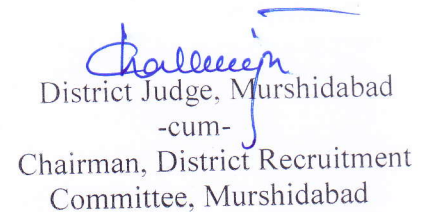 District Judge, Murshidabad
-cum-
Chairman, District Recruitment
Committee, Murshidabad